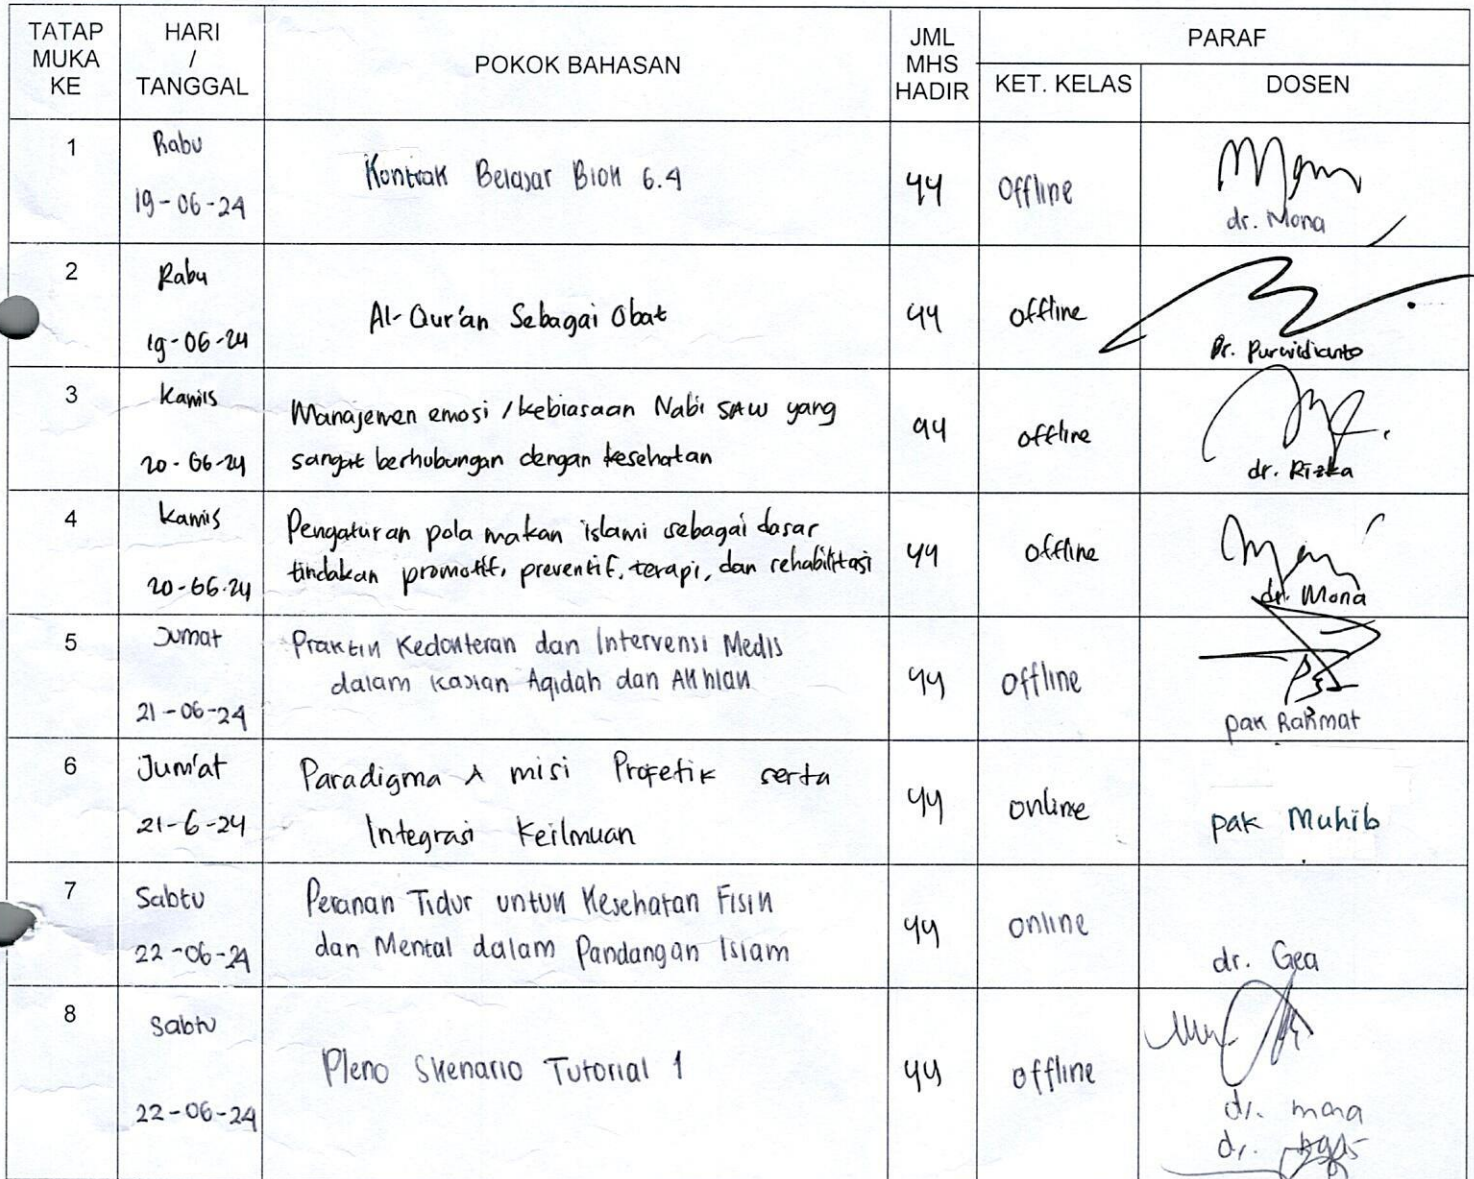 TATAP MUKA KE
HARI / TANGGAL
POKOK BAHASAN
JML MHS HADIR
PARAF
KET. KELAS
DOSEN
1
Rabu
19-06-24
Kontrak Belajar Blok 6.4
44
Offline
dr. Mona
2
Rabu
19-06-24
Al-Qur'an Sebagai Obat
44
offline
Dr. Purwidianto
3
Kamis
20-06-24
Manajemen emosi / kebiasaan Nabi SAW yang
sangat berhubungan dengan kesehatan
44
offline
dr. Rizka
4
Kamis
20-06-24
Pengaturan pola makan islami sebagai dasar
tindakan promotif, preventif, terapi, dan rehabilitasi
44
offline
dr. Mona
5
Jumat
21-06-24
Praktik Kedokteran dan Intervensi Medis
dalam Kajian Aqidah dan Akhlak
44
offline
pak Rahmat
6
Jum'at
21-6-24
Paradigma & misi Profetik serta
Integrasi Keilmuan
44
online
pak Muhib
7
Sabtu
22-06-24
Peranan Tidur untuk Kesehatan Fisik
dan Mental dalam Pandangan Islam
44
online
dr. Gea
8
Sabtu
22-06-24
Pleno Skenario Tutorial 1
44
offline
dr. mona
dr.